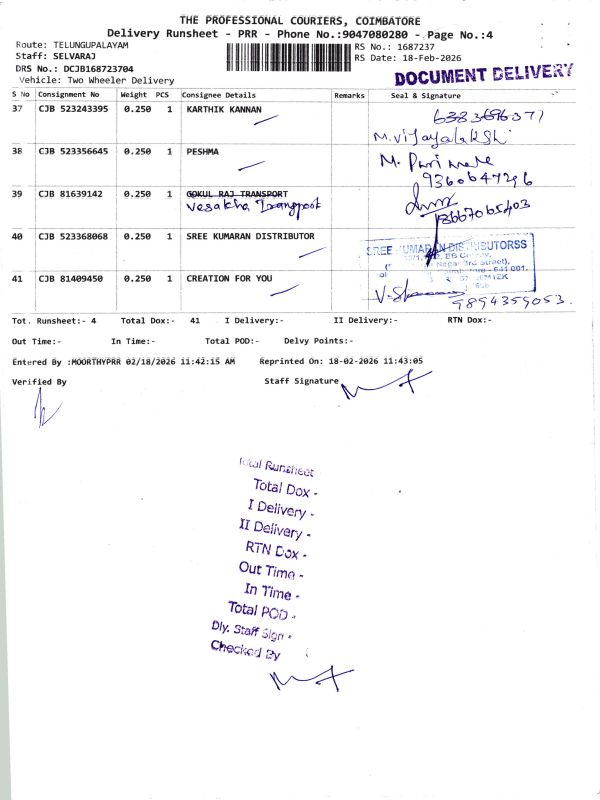 THE PROFESSIONAL COURIERS, COIMBATORE
Delivery Runsheet - PRR - Phone No.:9047080280 - Page No.:4
Route: TELUNGUPALAYAM
RS No.: 1687237
Staff: SELVARAJ
RS Date: 18-Feb-2026
DRS No.: DCJB168723704
DOCUMENT DELIVERY
Vehicle: Two Wheeler Delivery
S No Consignment No Weight PCS Consignee Details Remarks Seal & Signature
37 CJB 523243395 0.250 1 KARTHIK KANNAN 6383696371
M.Vijayalakshi
38 CJB 523356645 0.250 1 PESHMA M.
9360647296
39 CJB 81639142 0.250 1 GOKUL RAJ TRANSPORT
Vesakha Transport
40 CJB 523368068 0.250 1 SREE KUMARAN DISTRIBUTOR SREE KUMARAN DISTRIBUTORSS
41 CJB 81409450 0.250 1 CREATION FOR YOU
9894359053.
Tot. Runsheet:- 4 Total Dox:- 41 I Delivery:- II Delivery:- RTN Dox:-
Out Time:- In Time:- Total POD:- Delvy Points:-
Entered By :MOORTHYPRR 02/18/2026 11:42:15 AM Reprinted On: 18-02-2026 11:43:05
Verified By Staff Signature
Total Runsheet
Total Dox -
I Delivery -
II Delivery -
RTN Dox -
Out Time -
In Time -
Total POD -
Dly. Staff Sign -
Checked By